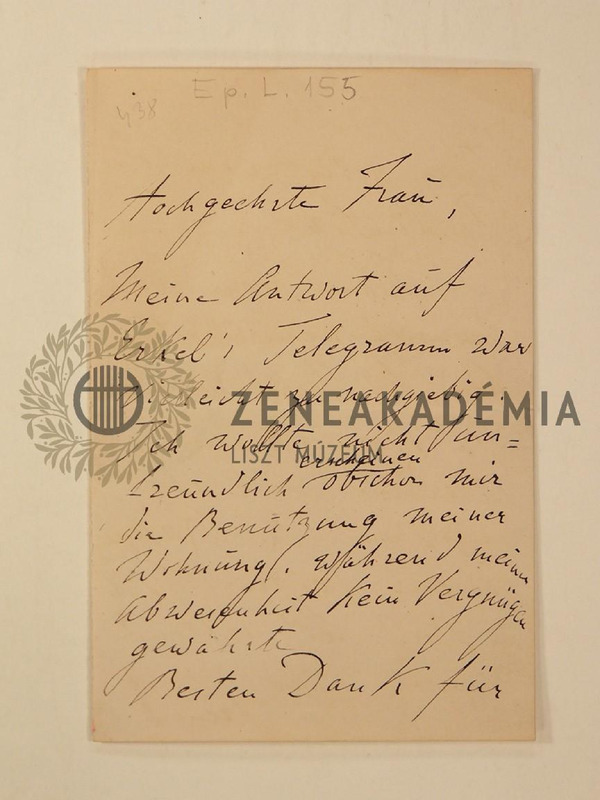 438
Ep. L. 155
Hochgeehrte Frau,
Meine Antwort auf
Erkel's Telegramm war
vielleicht zu nachgiebig.
ZENEAKADÉMIA
LISZT MÚZEUM
Ich wollte nicht un=
erscheinen
freundlich obschon mir
die Benützung meiner
Wohnung, während meiner
Abwesenheit kein Vergnügen
gewährte
Besten Dank für